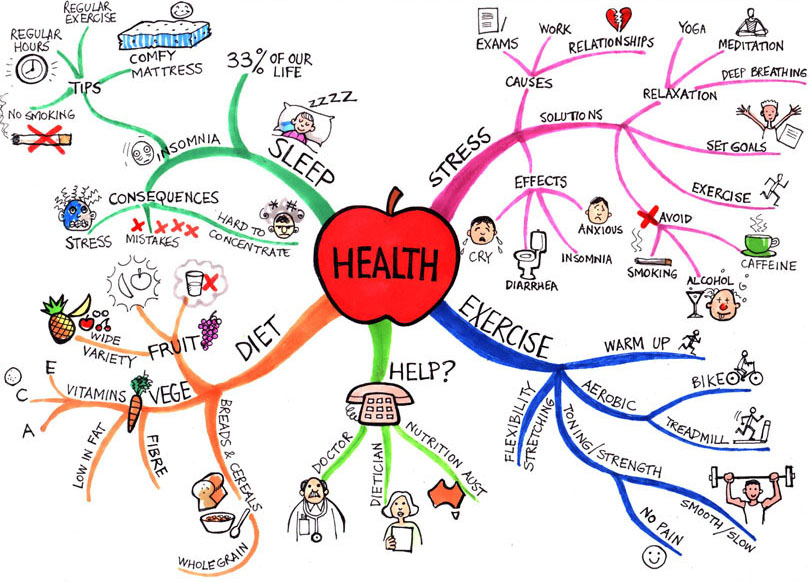 HEALTH
SLEEP
33% OF OUR
LIFE
ZZZZ
INSOMNIA
TIPS
REGULAR
EXERCISE
REGULAR
HOURS
COMFY
MATTRESS
NO SMOKING
CONSEQUENCES
STRESS
MISTAKES
HARD TO
CONCENTRATE
STRESS
CAUSES
EXAMS
WORK
RELATIONSHIPS
SOLUTIONS
RELAXATION
YOGA
MEDITATION
DEEP BREATHING
SET GOALS
EXERCISE
AVOID
SMOKING
ALCOHOL
CAFFEINE
EFFECTS
CRY
DIARRHEA
INSOMNIA
ANXIOUS
EXERCISE
WARM UP
AEROBIC
BIKE
TREADMILL
TONING/STRENGTH
SMOOTH/SLOW
NO PAIN
FLEXIBILITY
STRETCHING
HELP?
DOCTOR
DIETICIAN
NUTRITION AUST
DIET
FRUIT
WIDE
VARIETY
VEGE
VITAMINS
E
C
A
LOW IN FAT
FIBRE
BREADS & CEREALS
WHOLEGRAIN